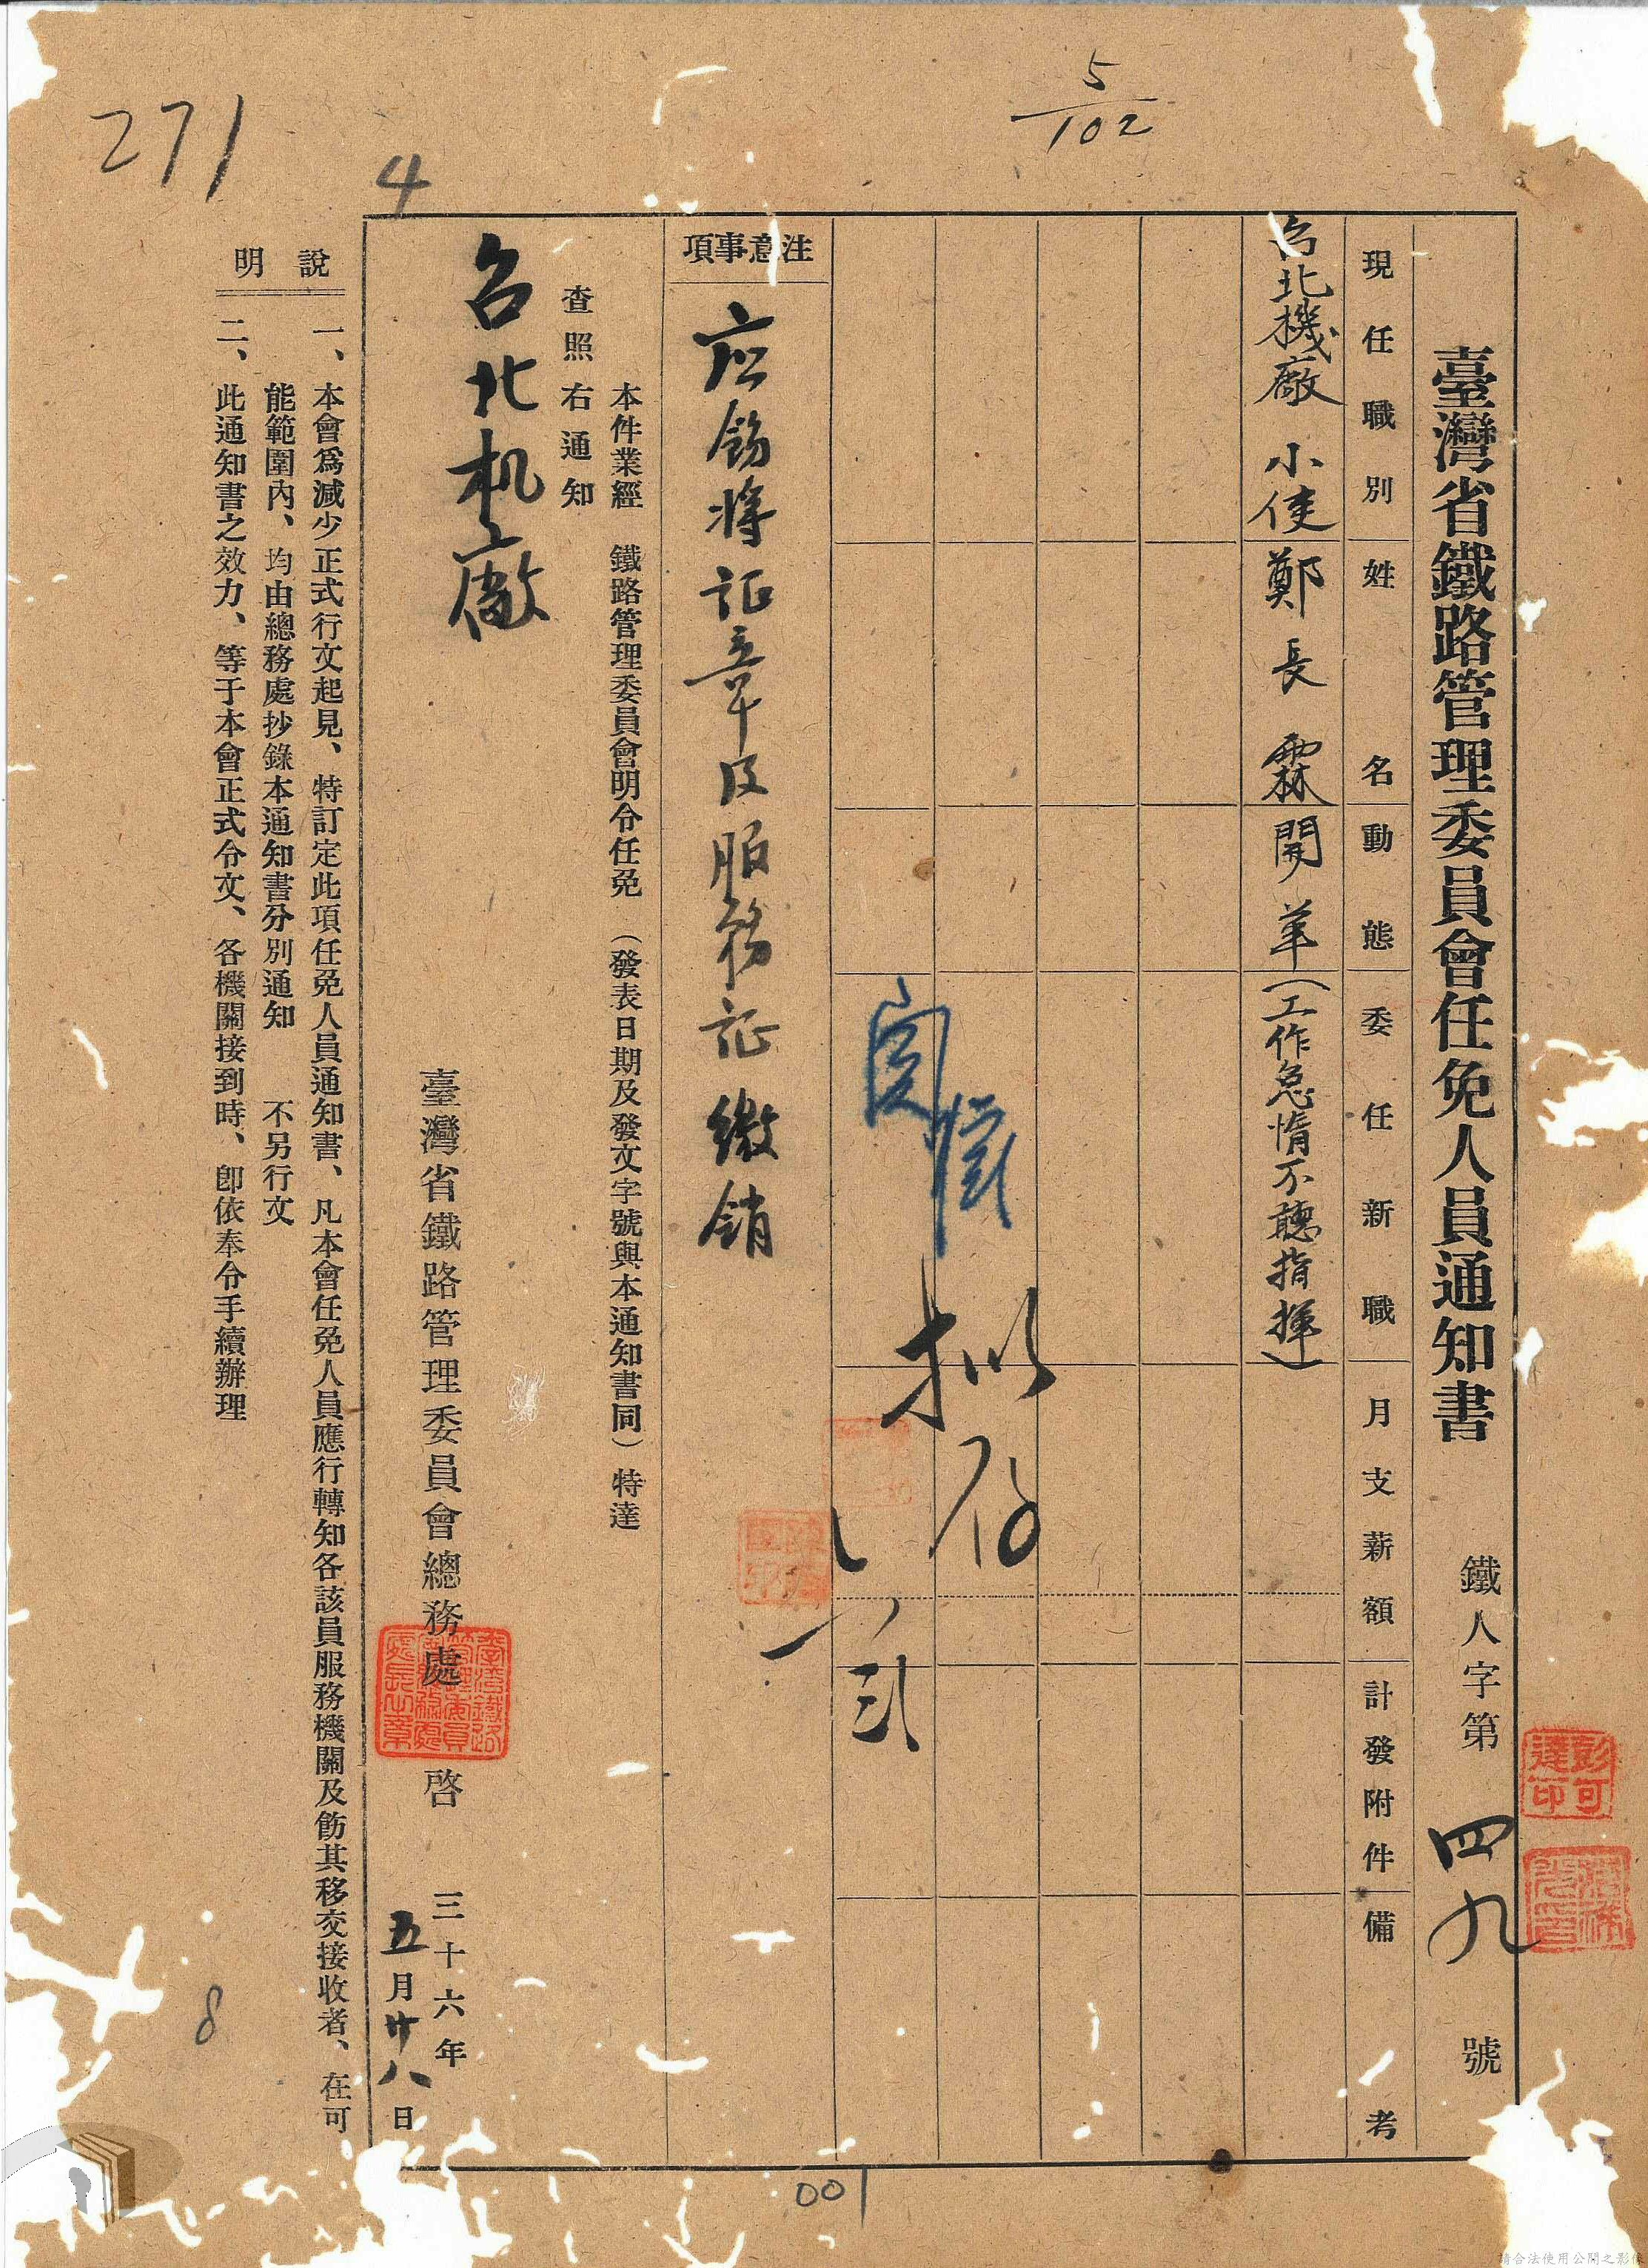 271
4
5/102
臺灣省鐵路管理委員會任免人員通知書 鐵人字第四九號
彭可達印
現任職別 姓名 動態 委任新職 月支薪額 計發附件 備考
台北機廠 小使 鄭長霖 開革(工作怠惰不聽指揮)
拟存
注意事項
应飭將证章及服務证繳銷
本件業經 鐵路管理委員會明令任免(發表日期及發文字號與本通知書同)特達
查照右通知
台北机廠
臺灣省鐵路管理委員會總務處啓
三十六年
五月廿八日
說明
一、本會爲減少正式行文起見、特訂定此項任免人員通知書、凡本會任免人員應行轉知各該員服務機關及飭其移交接收者、在可
能範圍內、均由總務處抄錄本通知書分別通知 不另行文
二、此通知書之效力、等于本會正式令文、各機關接到時、卽依奉令手續辦理
8
001
請合法使用公開之影像